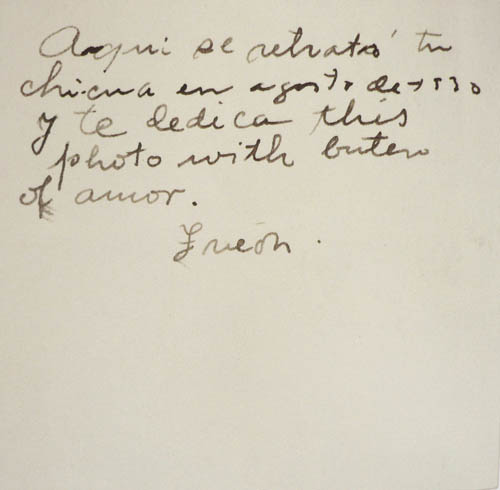 Aqui se retrató tu
chicua en agosto de 1930
y te dedica this
photo with buten
of amor.
Frieda.